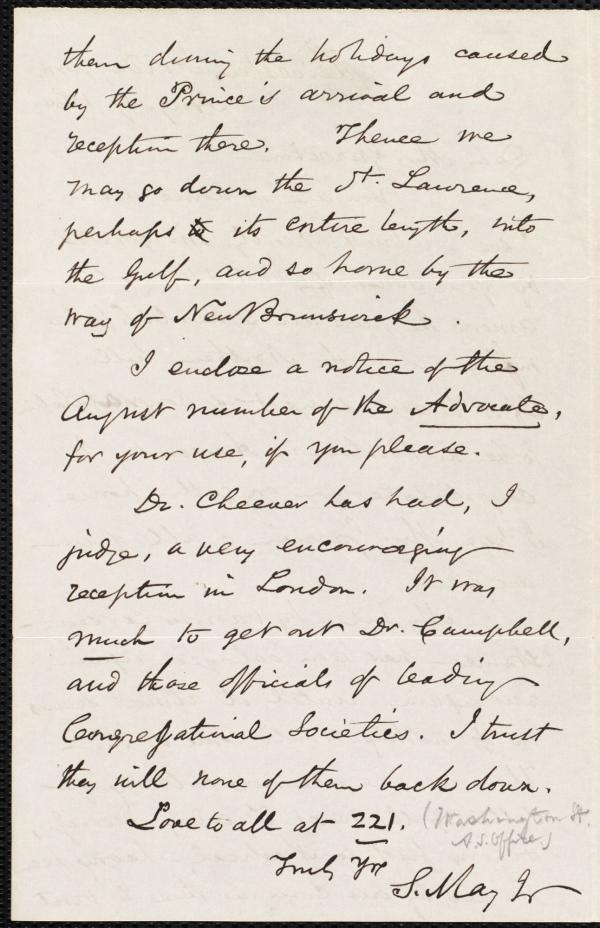 them during the holidays caused
by the Prince's arrival and
reception there. Thence we
may go down the St. Lawrence,
perhaps its entire length, into
the Gulf, and so home by the
way of New Brunswick.
I enclose a notice of the
August number of the Advocate,
for your use, if you please.
Dr. Cheever has had, I
judge, a very encouraging
reception in London. It was
much to get out Dr. Campbell,
and those officials of leading
Congregational Societies. I trust
they will none of them back down.
Love to all at 221. (Washington St.
A.S. Office.)
Truly Yrs
S. May Jr